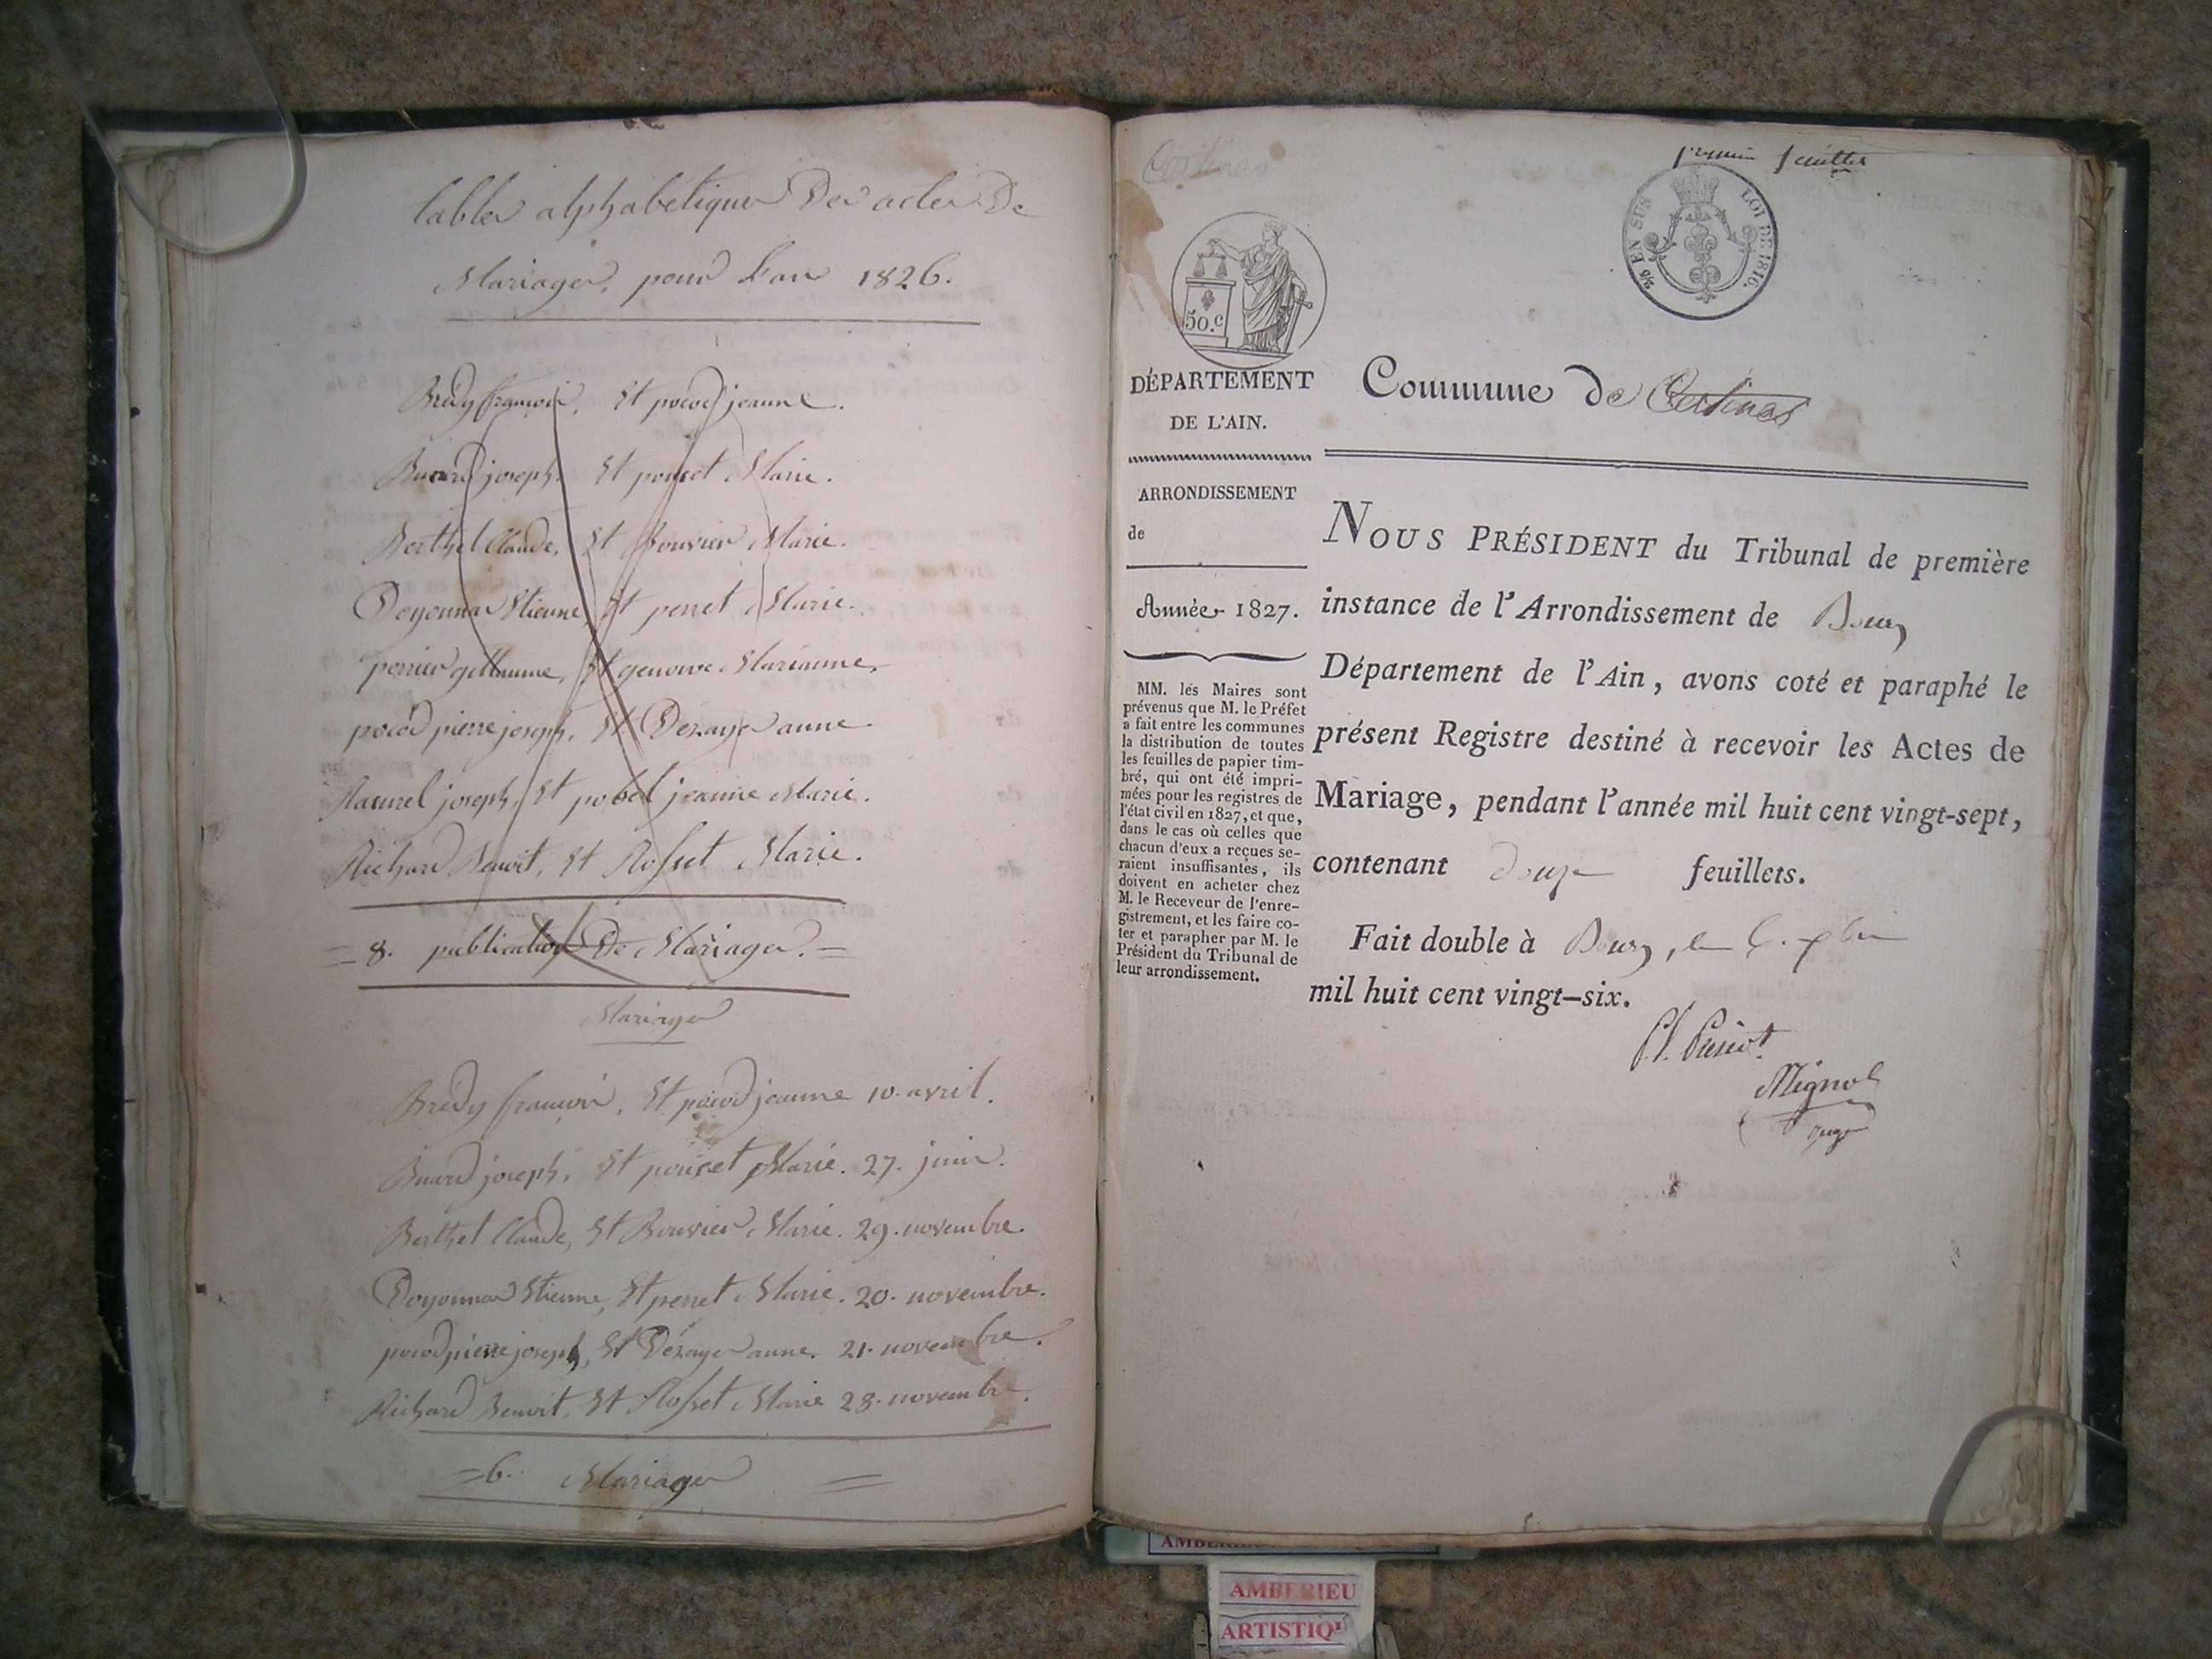 tables alphabetiques Des actes De
Mariages, pour L'an 1826.
Brédy françois, Et pocod jeanne.
Buard joseph, Et poncet Marie.
Berthet Claude, Et Bouvier Marie.
Doyonnas Etienne, Et perret Marie.
perrier guillaume, Et genowe Marianne.
pocod pierre joseph, Et Dézayes anne
joseph, Et pobel jeanne Marie.
Richard Benoit, Et Rosset Marie.
= 8. publications De Mariages. =
Mariages
Brédy françois, Et pocod jeanne 10. avril.
Buard joseph, Et poncet Marie. 27. juin.
Berthet Claude, Et Bouvier Marie. 29. novembre.
Doyonnas Etienne, Et perret Marie. 20. novembre.
pocod pierre joseph, Et Dézayes anne. 21. novembre.
Richard Benoit, Et Rosset Marie 28. novembre.
= 6. Mariages =
Certines
premier feuillet
EN SUS LOI DE 1816.
50.c
DÉPARTEMENT
DE L'AIN.
ARRONDISSEMENT
de
Année 1827.
MM. les Maires sont
prévenus que M. le Préfet
a fait entre les communes
la distribution de toutes
les feuilles de papier tim-
bré, qui ont été impri-
mées pour les registres de
l'état civil en 1827, et que,
dans le cas où celles que
chacun d'eux a reçues se-
raient insuffisantes, ils
doivent en acheter chez
M. le Receveur de l'enre-
gistrement, et les faire co-
ter et parapher par M. le
Président du Tribunal de
leur arrondissement.
Commune de Certines
NOUS PRÉSIDENT du Tribunal de première
instance de l'Arrondissement de Bourg
Département de l'Ain, avons coté et paraphé le
présent Registre destiné à recevoir les Actes de
Mariage, pendant l'année mil huit cent vingt-sept,
contenant douze feuillets.
Fait double à Bourg, le
mil huit cent vingt-six.
Mignot
juge
AMBERIEU
AMBERIEU
ARTISTIQ